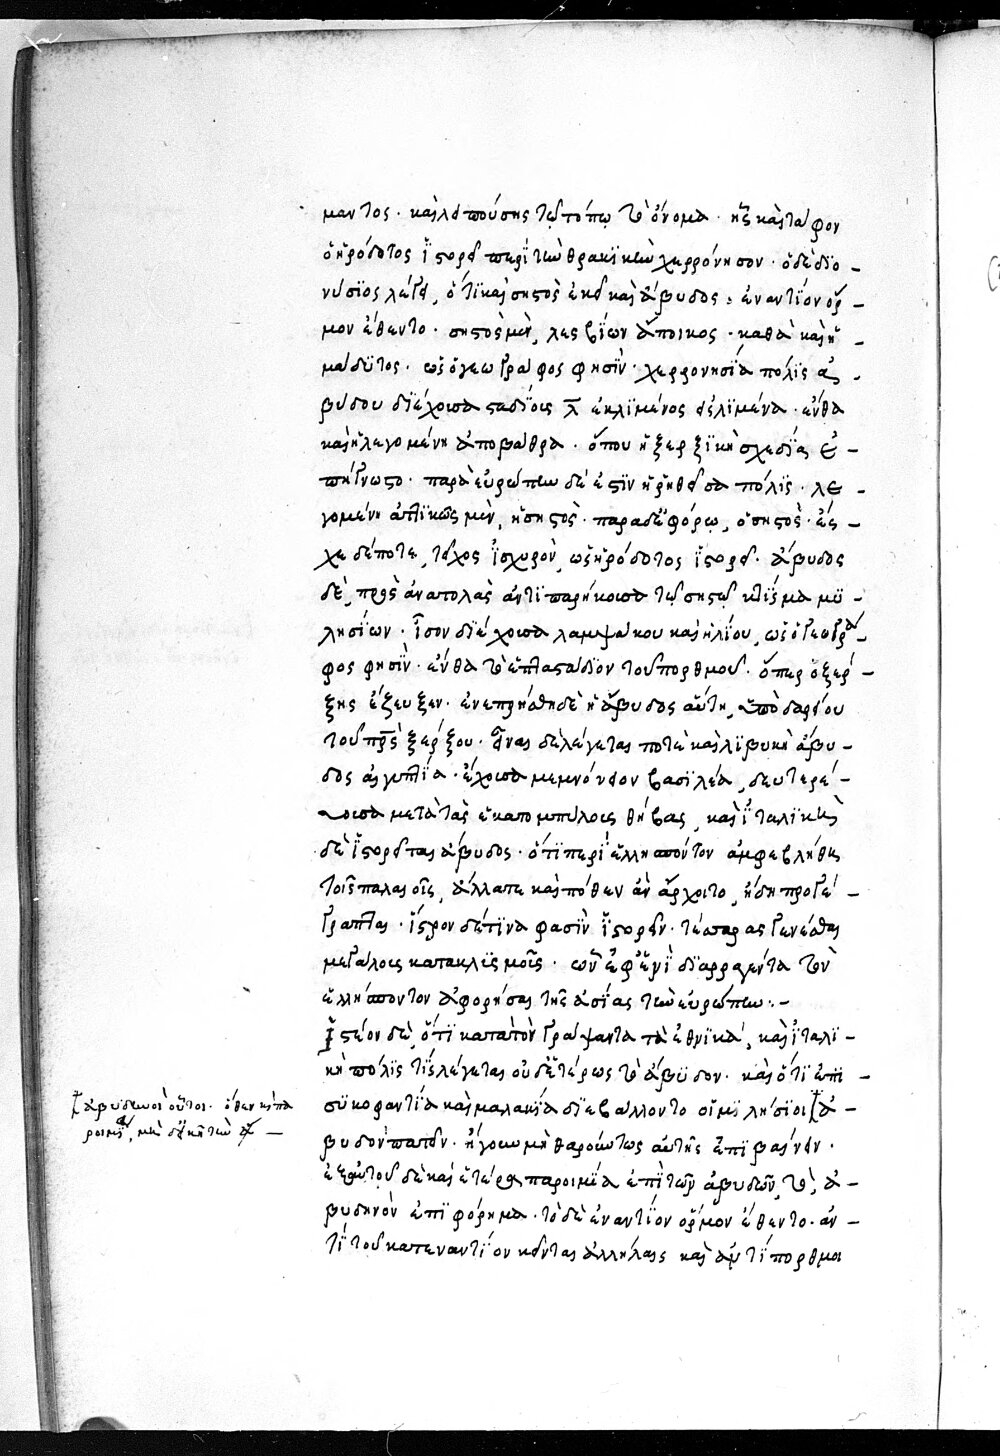 μαντος· καὶ λιπούσης τῷ τόπῳ τὸ ὄνομα· ἧς καὶ τάφον
ὁ ἡρόδοτος ἱστορεῖ περὶ τὴν θρακικὴν χερρόνησον· ὁ δὲ διο-
νύσιος λέγει, ὅτι καὶ σηστὸς ἐκεῖ καὶ ἄβυδος, ἐναντίον ὅρ-
μον ἔθεντο· σηστὸς μὲν, λεσβίων ἄποικος· καθὰ καὶ ἡ
μάδυτος· ὡς ὁ γεωγράφος φησίν· χερρονησία πόλις ἀ-
βύδου διέχουσα σταδίοις λ̅ ἐκ λιμένος εἰς λιμένα· ἔνθα
καὶ ἡ λεγομένη ἀποβάθρα· ὅπου ἡ ξερξικὴ σχεδία ἐ-
πήγνυτο· παρὰ εὐρώπην δέ ἐστιν ἡ ῥηθεῖσα πόλις· λε-
γομένη ἀττικῶς μὲν, ἡ σηστός· παρὰ δὲ ἐφόρῳ, ὁ σηστός· ἔσ-
χε δέ ποτε, τεῖχος ἰσχυρὸν, ὡς ἡρόδοτος ἱστορεῖ· ἄβυδος
δὲ, πρὸς ἀνατολὰς ἀντιπαρήκουσα τῷ σηστῷ κτίσμα μι-
λησίων· ἴσον διέχουσα λαμψάκου καὶ ἰλίου, ὡς ὁ γεωγρά-
φος φησίν· ἔνθα τὸ ἑπταστάδιον τοῦ πορθμοῦ· ὅπερ ὁ ξέρ-
ξης ἔζευξεν· ἐνεπρήσθη δὲ ἡ ἄβυδος αὕτη, ὑπὸ δαρείου
τοῦ πρὸς ξέρξου· εἶναι δὲ λέγεται ποτὲ καὶ λιβυκὴ ἄβυ-
δος αἰγυπτία· ἔχουσα μεμνόνειον βασίλεια, δευτερεύ-
ουσα μετὰ τὰς ἑκατομπύλους θήβας, καὶ ἰταλικὴ
δὲ ἱστορεῖται ἄβυδος· ὅτι περὶ ἑλλήσποντον ἀμφεβλήθη
τοῖς παλαιοῖς, ἀλλά τε καὶ πόθεν ἂν ἄρχοιτο, ἤδη προγέ-
γραπται· ἴστρον δέ τινά φασιν ἱστορεῖν· τέσσαρας γενέσθαι
μεγάλους κατακλυσμοῖς· ὧν ἐφ' ἑνὶ διαρραγέντα τὸν
ἑλλήσποντον ἀφορίσαι τῆς ἀσίας τὴν εὐρώπην·-
Ἰστέον δὲ, ὅτι κατὰ τὸν γράψαντα τὰ ἐθνικά, καὶ ἰταλι-
κὴ πόλις τίς λέγεται οὐδετέρως τὸ ἄβυδον· καὶ ὅτι ἐπὶ
συκοφαντίᾳ καὶ μαλακίᾳ διεβάλλοντο οἱ μιλήσιοι ἀ-
βυδον πατεῖν· ἤγουν μὴ θαρρούντως αὐτῆς ἐπιβαίνειν·
ἐξ αὐτοῦ δὲ καὶ ἑτέρα παροιμία ἐπὶ τῶν ἀβυδῶν, τὸ, ἀ-
βυδηνὸν ἐπιφόρημα· τὸ δὲ ἐναντίον ὅρμον ἔθεντο· ἀν-
τὶ τοῦ κατεναντίον κεῖνται ἀλλήλαις καὶ ἀντίπορθμοι
ἀβυδηνοὶ οὗτοι· ὅθεν καὶ πα
ροιμία, μὴ εἰκῆ τὴν ἄ-